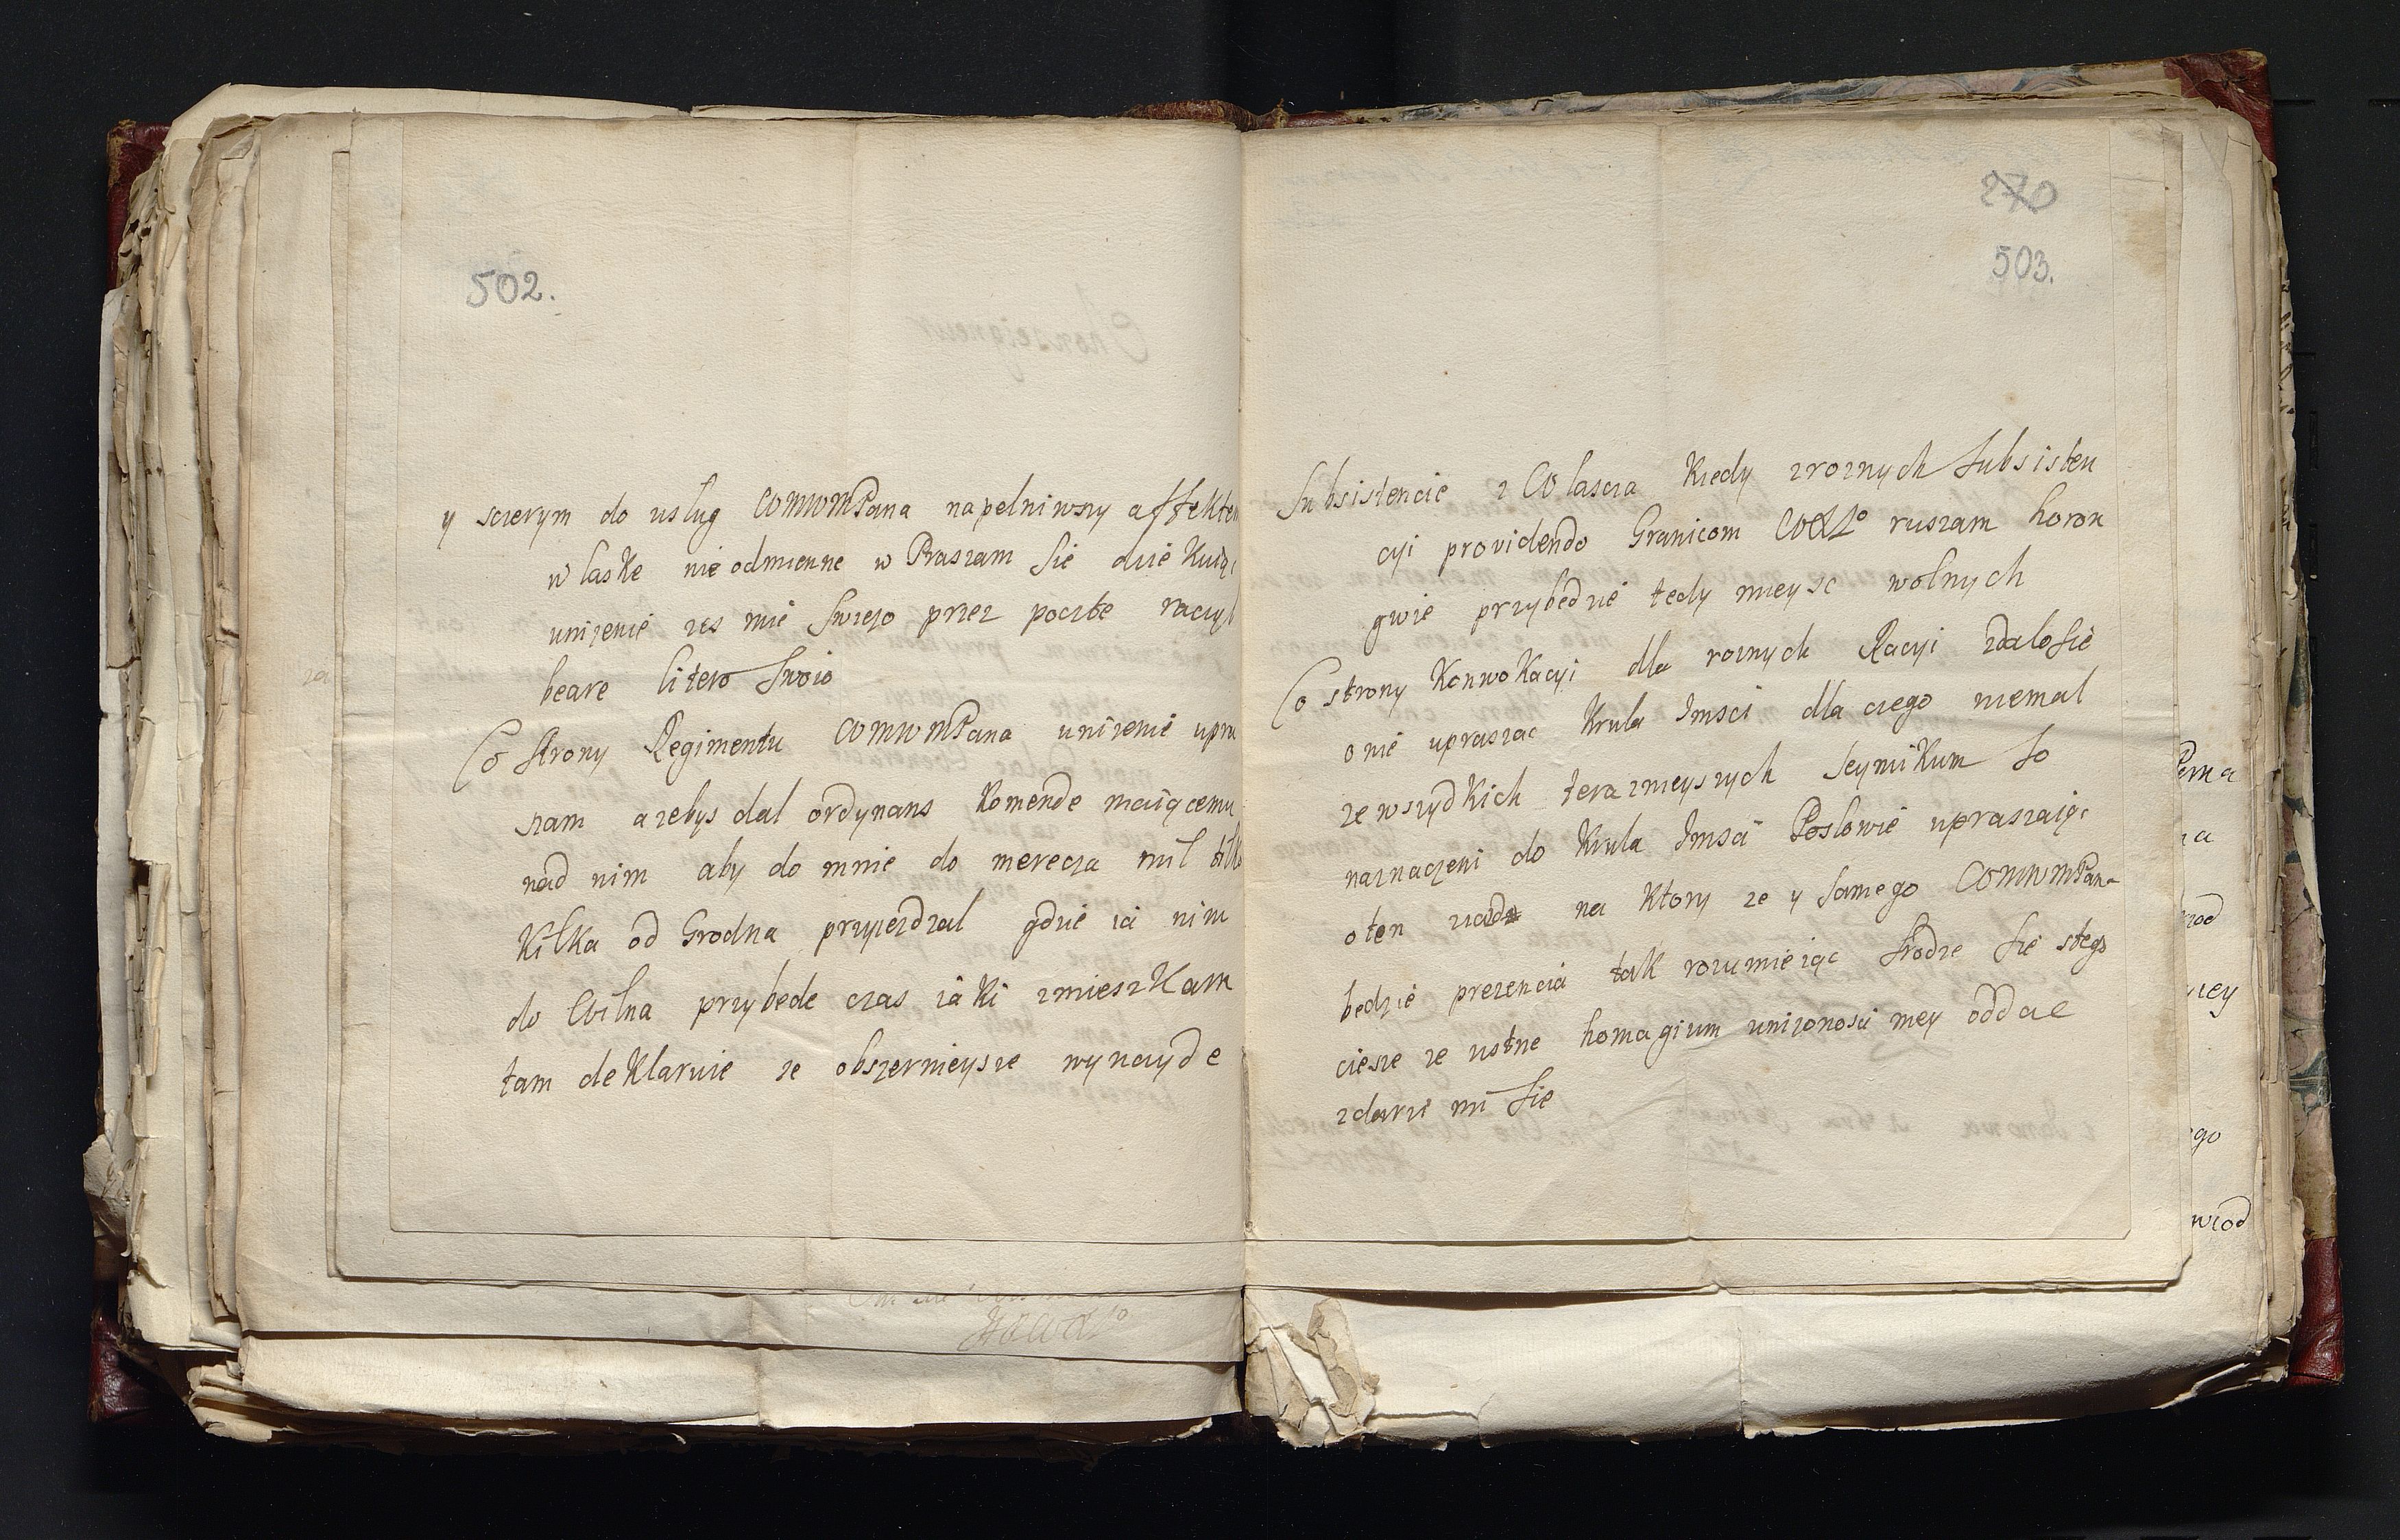 502.
y sczerym do uslug WMWMPana napelniwszy affekte
w laske nieodmienne w Praszam sie dziekuiąc
unizenie zes mie swiezo przez poczte raczyl
beare litero swoio
Co strony Regimentu WMWMPana unizenie upra
szam azebys dal ordynans Komende maiącemu
nad nim aby do mnie do merecza mil
Kilka od Grodna przyiezdzal gdzie ia nim
do Wilna przybede czas iaki zmieszkam
tam deklaruie ze obszernieysze wynayde
270
503.
Subsistencie z Wlascza Kiedy zroznych subsisten
cyi providendo Granicom WXLo ruszam horon
gwie przybedzie tedy mieysc wolnych
Co strony Konwokacyi dla roznych Racyi zdalosie
o nie upraszac Krula Imsci dla czego niemal
ze wszydkich terazmieyszych seymikum so
naznaczeni do Krula Imsci Poslowie upraszaiąc
o ten ziazd na Ktory ze y samego WMWMPana
bedzie prezencia tak rozumieiąc srodze sie stego
ciesze ze ustne homagium unizonosci mey oddac
zdarzi mi sie